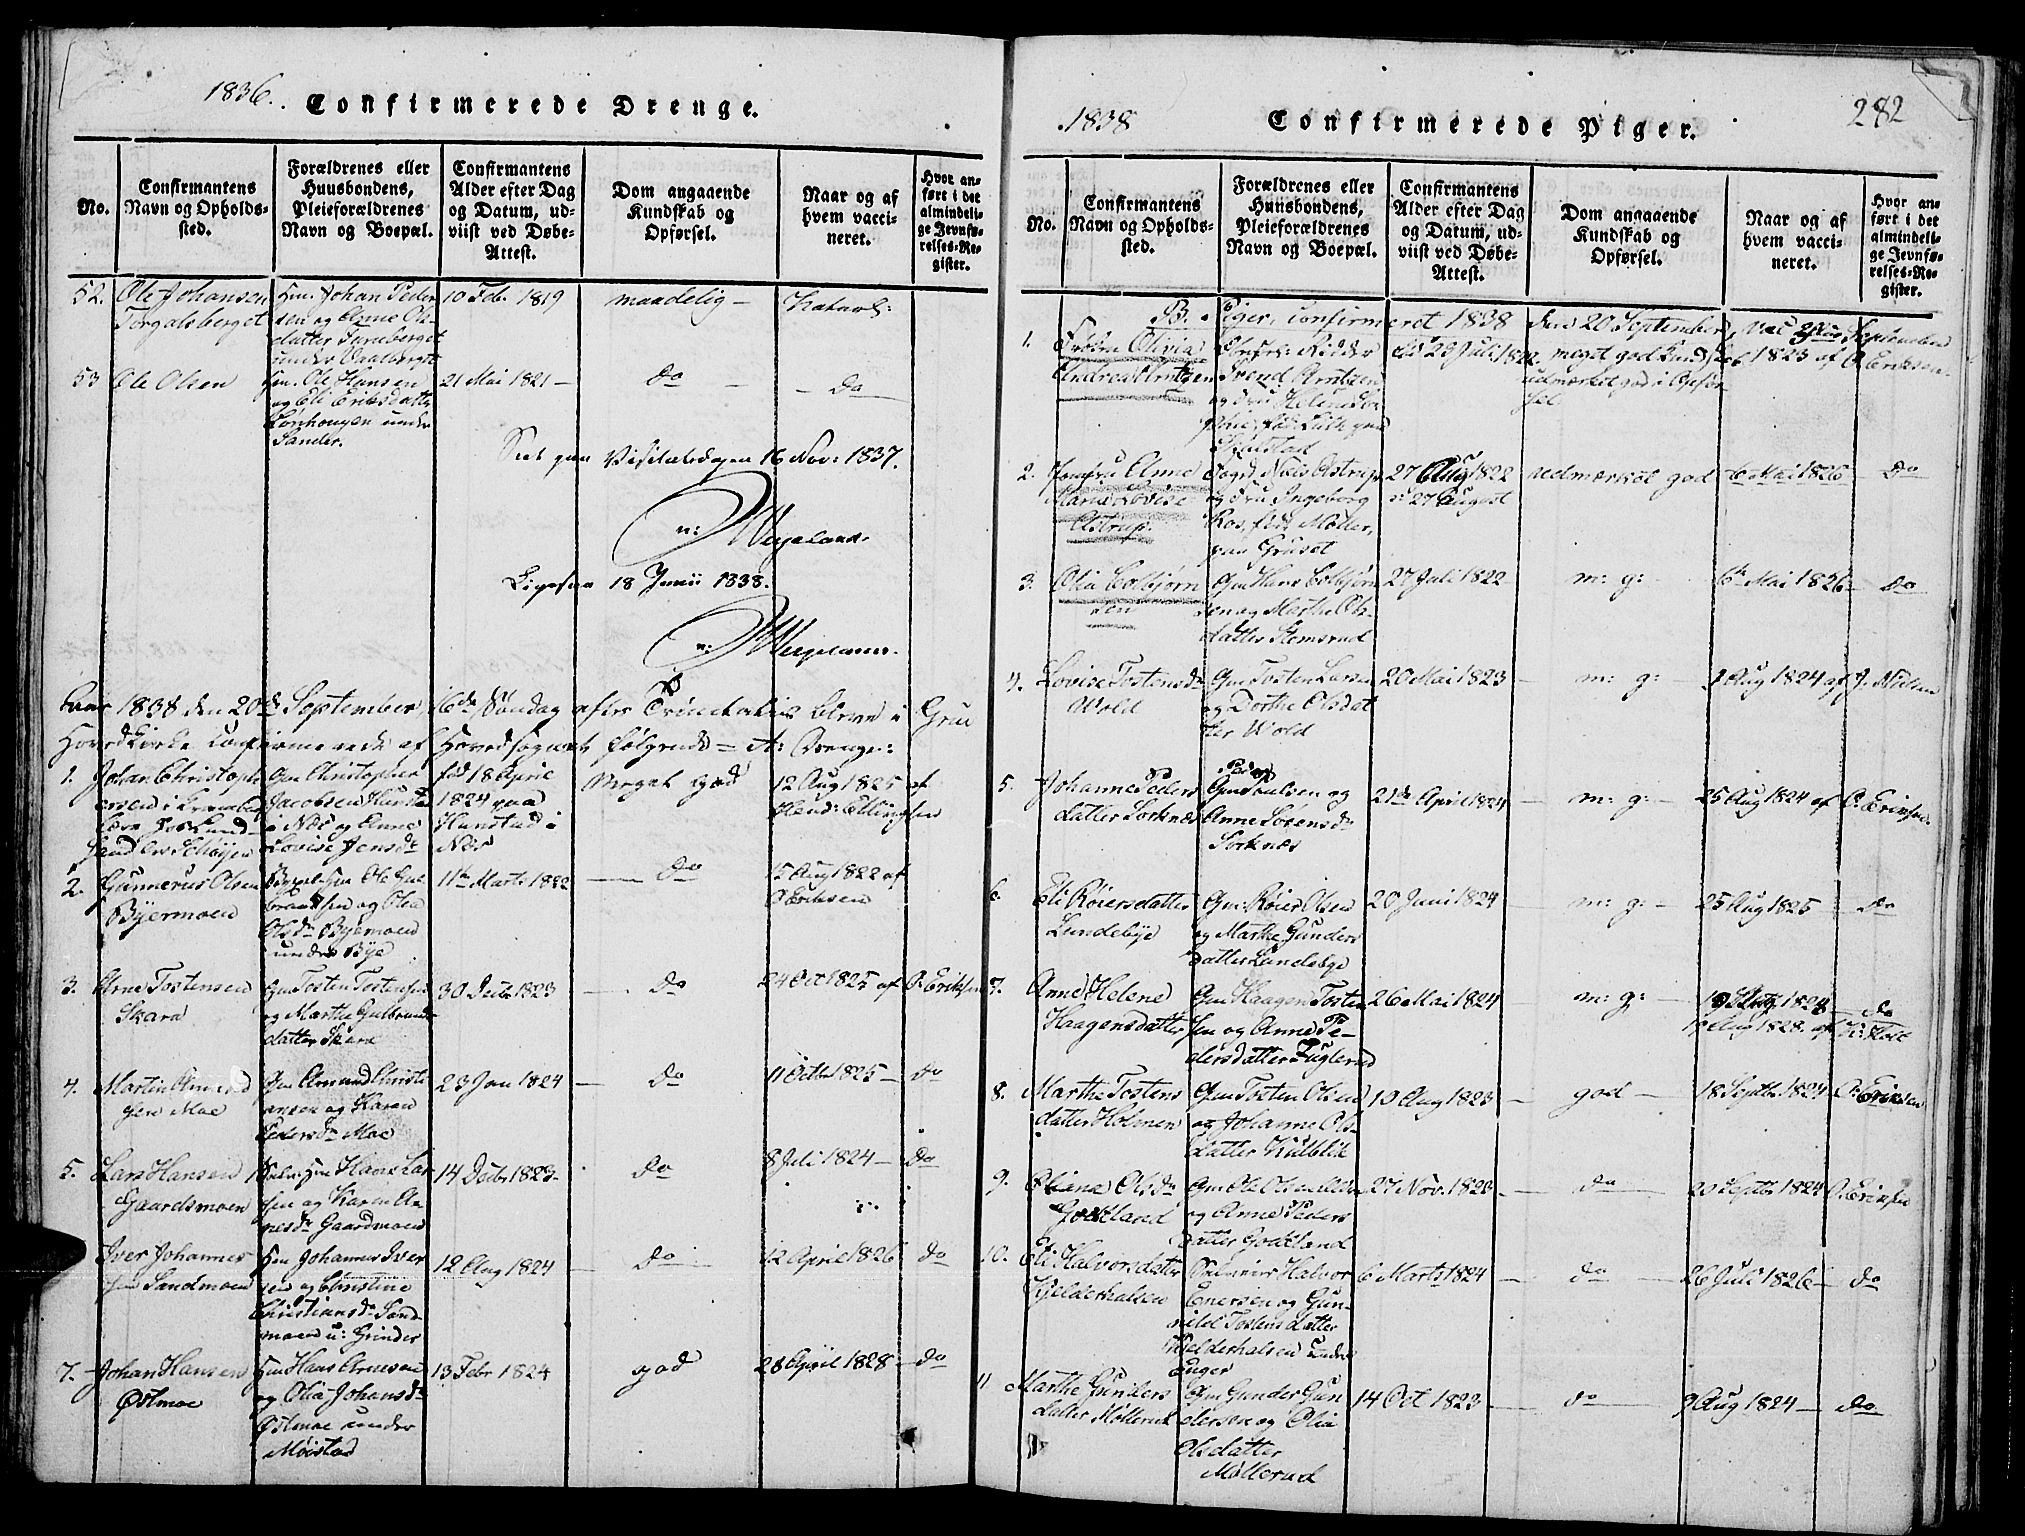 1836.
Confirmerede Drenge.
No.
Confirmantens
Navn og Opholds-
sted.
Forældrenes eller
Huusbondens,
Pleieforældrenes
Navn og Boepæl.
Confirmantens
Alder efter Dag
og Datum, ud-
viist ved Døbe-
Attest.
Dom angaaende
Kundskab og
Opførsel.
Naar og af
hvem vacci-
neret.
Hvor an-
ført i det
almindeli-
ge Jevnfø-
relses-Re-
gister.
52. Ole Johansen
Torgalsberget
Hm. Johan Peder
sen og Anne Ols-
datter
under
10 Feb. 1819
maadelig -
53 Ole Olsen
Hm. Ole Hansen
og Eli Eriksdatter
Lønhougen under
Sander.
21 Mai 1821 -
do
- do
Seet paa Visitatsdagen 16 Nov: 1837.
n: Wergeland.
Ligesaa 18 Junii 1838.
n: Wergeland.
Aar 1838 den 20de September 16de Søndag efter Trinitatis bleve i Grue
Hovedkirke confirmerede af Hovedsognet følgende = A: Drenge:
1. Johan Christoph
ersen i
Gm Christopher
Jacobsen
i Næs og Anne
Lovise Jensdr
fød 18 April
1824 paa
Hunstad i
Næs
Meget god
12 Aug 1825 af
Hend: Ellingsen
2. Gunnerus Olsen
Byermoen
Ole Gul
brandsen og Olia
Olsdr Byermoen
under Bye
11te Marts 1822
do
15 Aug 1822 af
O Eriksen
3. Arne Tostensen
Skara
Gm Tosten Tostensen
og Marthe Gulbrands
datter Skara
30 Decbr 1823
do
24 Oct 1825 af O. Eriksen
4. Martin Amund
sen Moe
Gm Amund Christi
ansen og Karen
Pedersdr Moe
23 Jan 1824
do
11 Octbr 1825 - do
5. Lars Hansen
Gaardsmoen
Hm Hans Lar
sen og Karen Ar
nesdr Gaardmoen
14 Decbr 1823.
do
8 Juli 1824 - do
Iver Johannes
sen Sandmoen
Hm Johannes Iver
sen og Christine
Christiansdr Sand
moen u: Grinder
12 Aug 1824
do
12 April 1826 do
7. Johan Hansen
Østmoe
Hm Hans Arnesen
og Olia Johansdr
Østmoe under
Møistad
13 Febr 1824
god
28 April 1828 - do
1838
Confirmerede Piger.
282
No.
Confirmantens
Navn og Opholds-
sted.
Forældrenes eller
Huusbondens,
Pleieforældrenes
Navn og Boepæl.
Confirmantens
Alder efter Dag
og Datum, ud-
viist ved Døbe-
Attest.
Dom angaaende
Kundskab og
Opførsel.
Naar og af
hvem vacci-
neret.
Hvor an-
ført i det
almindeli-
ge Jevnfø-
relses-Re-
gister.
B. Piger, confirmeret 1838 den 20 September,
1. Frøken Olivia
Andrea Arntzen
Ridder
Svend Arntzen
og Fru Helene So
phie, fød
23 Juli 1822
meget god Kundskab
udmærket god i Opfør
sel
September
1823 af O. Eriksen.
2. Jomfru Anne
Maria Lovise
Astrup.
Fogd Niels Astrup
og Fru Ingeborg
Ros, fød Møller,
paa Gruset
27 Aug 1822
27 August
udmærket god
6 Mai 1826 - do
3. Olia Colbjørn
sen
Gm Hans Colbjørn
sen og Marthe Ols-
datter Stemsrud
27 Juli 1822
m: g: -
6te Mai 1826 - do
4. Lovise Tostensdr
Wold
Gm Tosten Larsen
og Dorthe Olsdat
ter Wold
20 Mai 1823 -
m: g: -
Aug 1824 af J. Nilsen
5. Johanne Peders
datter Sorknæs
Gm Peder Poulsen og
Anne Sørensdr
Sorknæs
21de April 1824 -
m: g: -
25 Aug 1824 af O. Eriksen.
6. Eli Røiersdatter
Lundebye
Gm: Røier Olsen
og Marthe Gunders
datter Lundebye
20 Juni 1824 -
m: g: -
25 Aug 1825 - do
7. Anne Helene
Haagensdatter
Gm Haagen Tosten
sen og Anne Pe-
dersdatter Fuglerud
26 Mai 1824
m: g: -
do
8. Marthe Tostens
datter Holmen
Gm Tosten Olsen
og Johanne Ols-
datter Kulblik
10 Aug 1823 -
god -
18 Septbr 1824 O. Eriksen
9. Oliane Olsdr
Godtland
Gm Ole Olsen
og Anne Peders
datter Godtland
27 Nov. 1823 -
do
20 Septbr 1824 O. Eriksen
10. Eli Halvorsdatter
Kjelderhalsen
Halvor
Enersen og Gun-
nild Tostensdatter
Kjelderhalsen under
Euger
6 Marts 1824 -
do
26 Juli 1826 - do
11 Marthe Gunders
datter Møllerud
Gm Gunder Gun
dersen og Olia
Olsdatter
Møllerud
14 Oct 1823 -
do
9 Aug 1824 - do